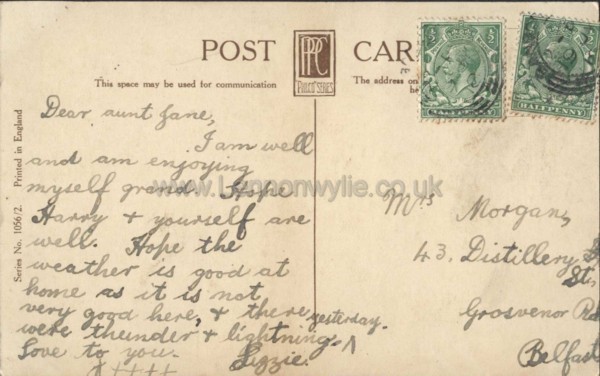 POST CAR
PRC
FORCO SERIES
This space may be used for communication
The address on
he
HALFPENNY
HALFPENNY
Series No. 1056/2. Printed in England
Dear aunt Jane,
I am well
and am enjoying
myself grand. Hope
Harry + yourself are
well. Hope the
weather is good at
home as it is not
very good here, + there
were thunder + lightning. ^ yesterday.
Love to you. Lizzie.
++++
Mrs Morgan,
43, Distillery
St,
Grosvenor Rd
Belfast
www.Lennonwylie.co.uk